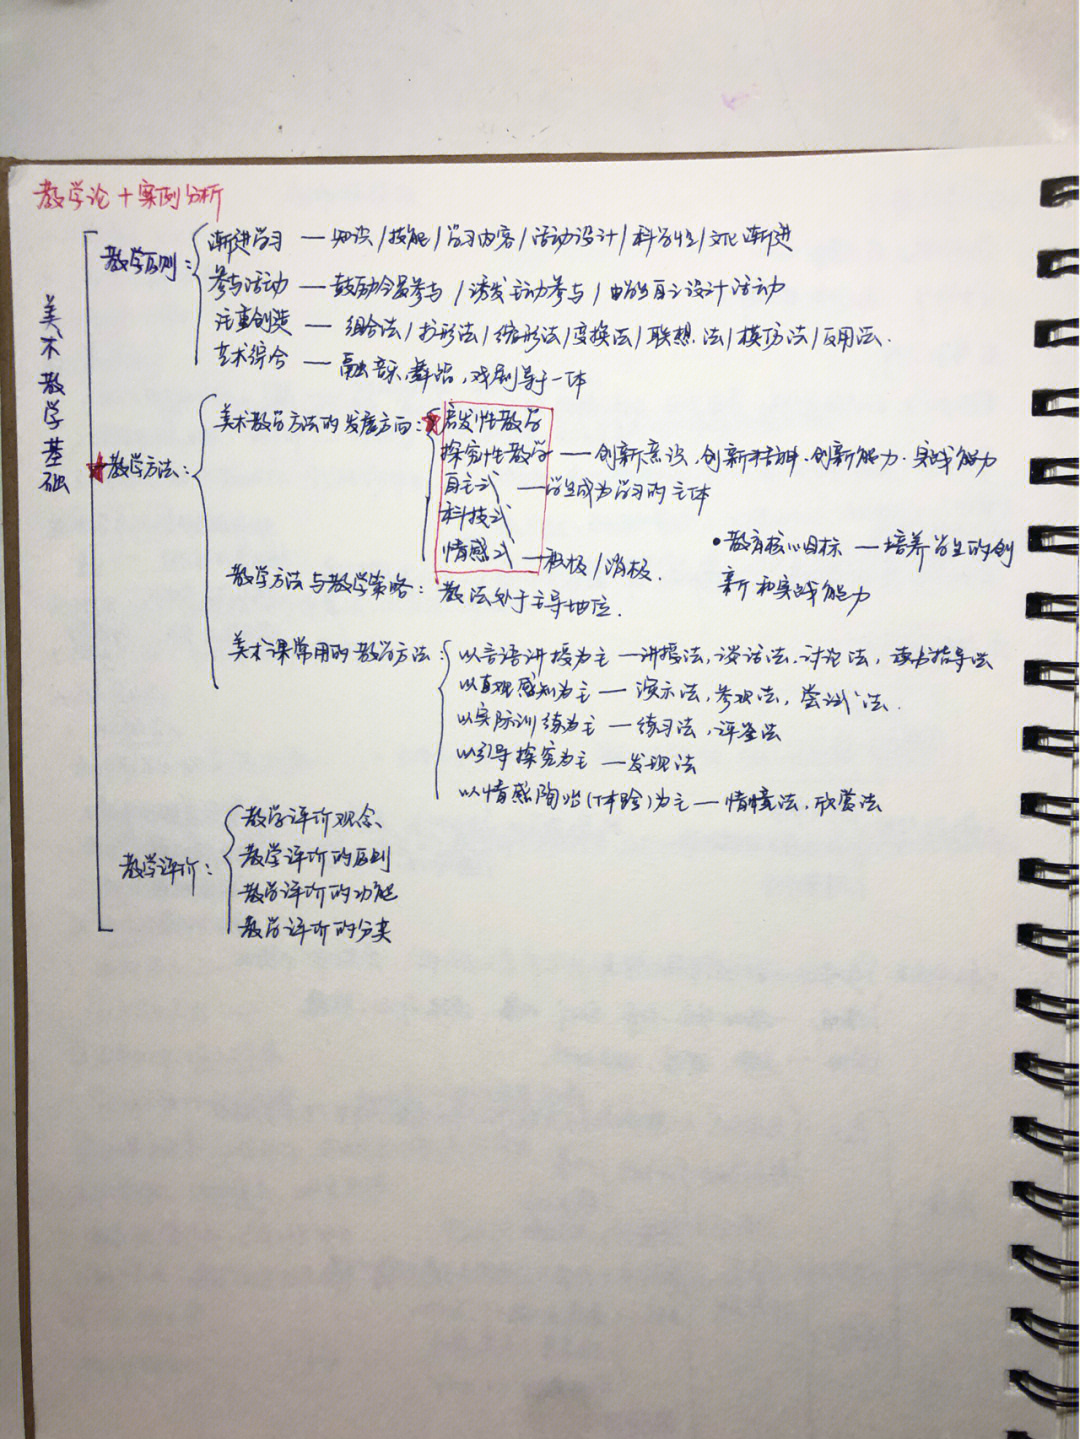 教学论+案例分析
美术教学基础
教学原则:
渐进学习 — 知识/技能/学习内容/活动设计/科学性/文化渐进
参与活动 — 鼓励全员参与/诱发主动参与/由学生自主设计活动
注重创造 — 组合法/扩形法/缩形法/变换法/联想法/模仿法/反用法.
艺术综合 — 融音乐、舞蹈、戏剧等于一体
★教学方法:
美术教学方法的发展方向:★启发性教学
探究性教学 — 创新意识、创新精神、创新能力、实践能力
自主式 — 学生成为学习的主体
科技式
情感式 — 积极/消极.
•教育核心目标 — 培养学生的创
新和实践能力
教学方法与教学策略:教法处于主导地位.
美术课常用的教学方法:以言语讲授为主 — 讲授法,谈话法,讨论法,读书指导法
以直观感知为主 — 演示法,参观法,尝试法.
以实际训练为主 — 练习法,评鉴法
以引导探究为主 — 发现法
以情感陶冶(体验)为主 — 情境法、欣赏法
教学评价:
教学评价观念
教学评价的原则
教学评价的功能
教学评价的分类